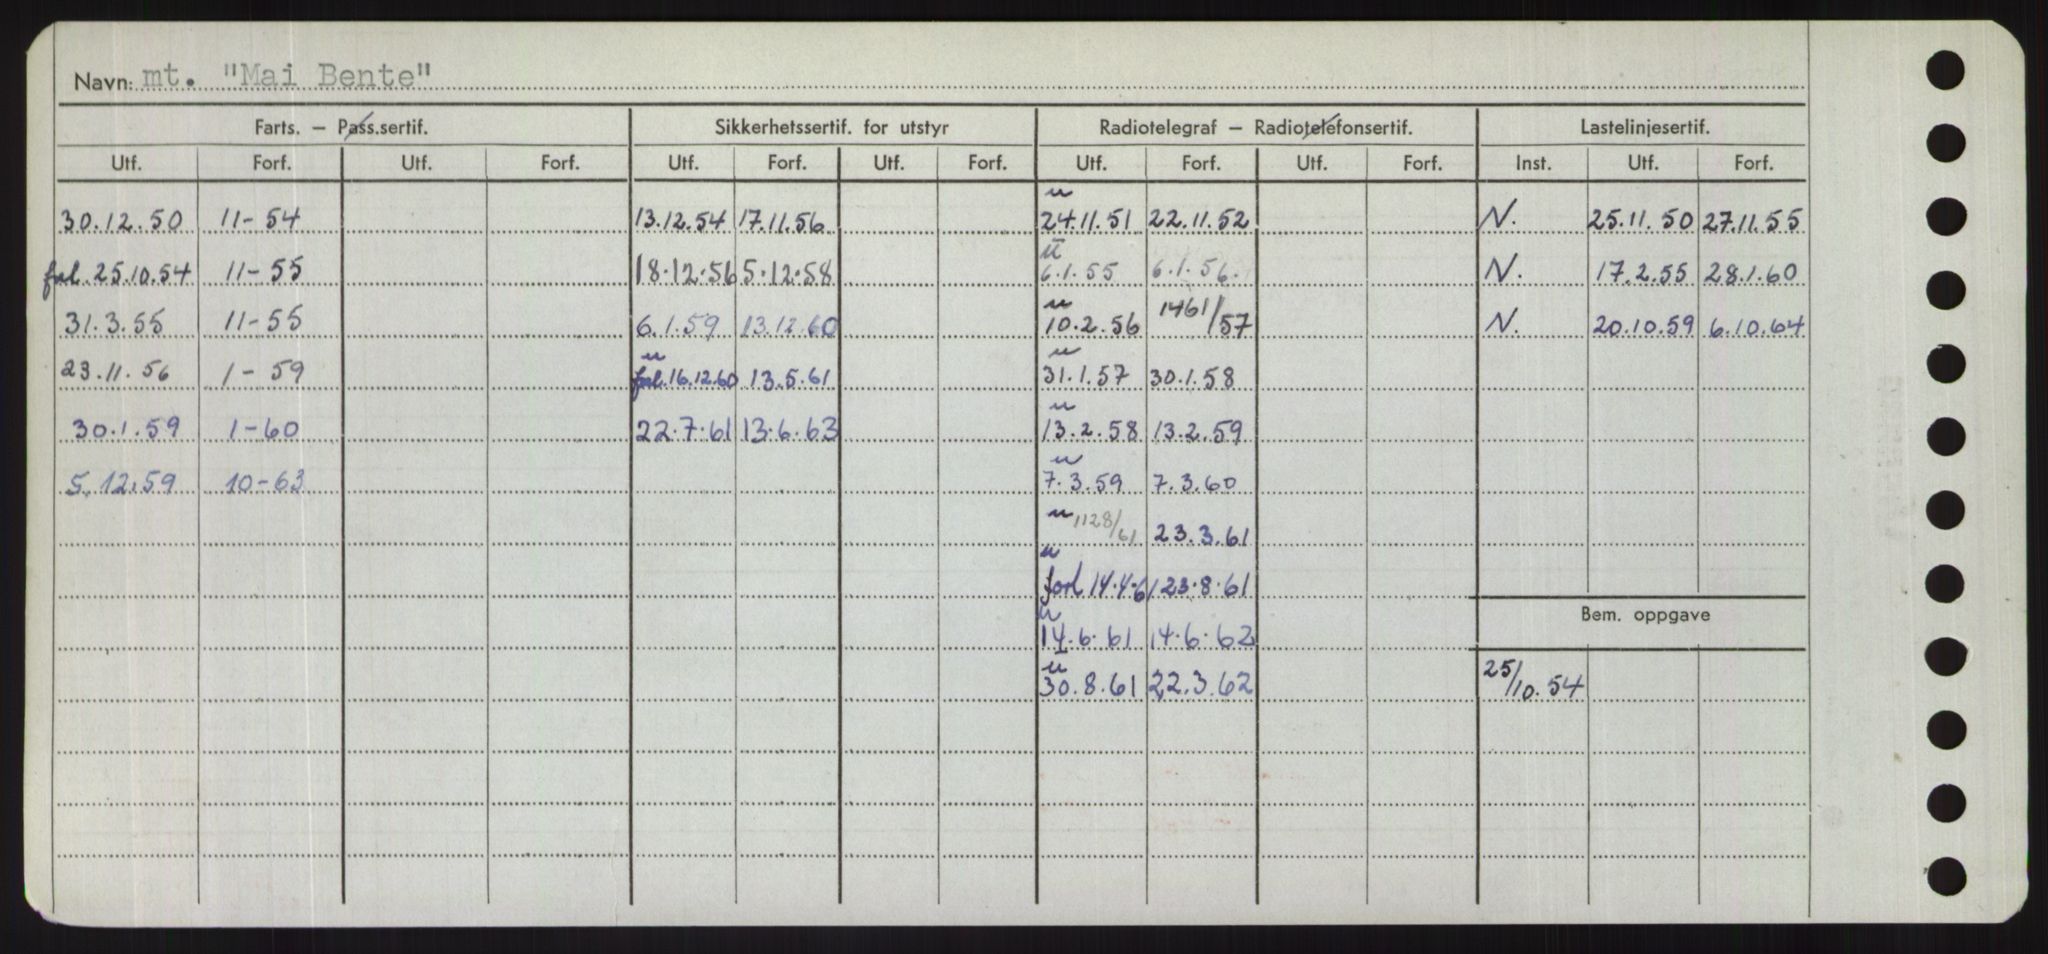 Navn: mt. "Mai Bente"
Farts. – Pass.sertif. Sikkerhetssertif. for utstyr Radiotelegraf – Radiotelefonsertif. Lastelinjesertif.
Utf. Forf. Utf. Forf. Utf. Forf. Utf. Forf. Utf. Forf. Utf. Forf. Inst. Utf. Forf.
u
30.12.50 11-54 13.12.54 17.11.56 24.11.51 22.11.52 N. 25.11.50 27.11.55
u
25.10.54 11-55 18.12.56 5.12.58 6.1.55 6.1.56. N. 17.2.55 28.1.60
u
31.3.55 11-55 6.1.59 13.12.60 10.2.56 1461/57 N. 20.10.59 6.10.64
u u
23.11.56 1-59 16.12.60 13.5.61 31.1.57 30.1.58
u
30.1.59 1-60 22.7.61 13.6.63 13.2.58 13.2.59
u
5.12.59 10-63 7.3.59 7.3.60
u 1128/61 23.3.61
u
forl 14.4.61 23.8.61
Bem. oppgave
u
14.6.61 14.6.62
u
30.8.61 22.3.62 25/10.54